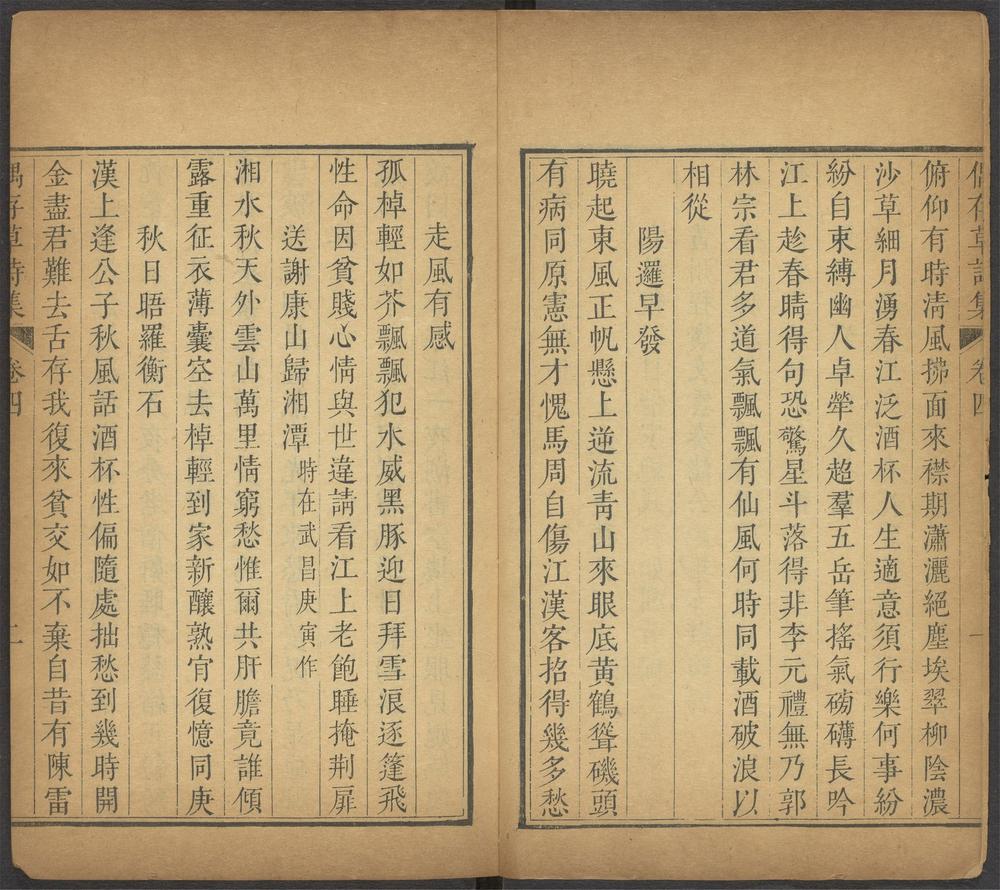 偶存草詩集 卷四 一
俯仰有時清風拂面來襟期瀟灑絕塵埃翠柳陰濃
沙草細月湧春江泛酒杯人生適意須行樂何事紛
紛自束縛幽人卓犖久超羣五岳筆搖氣磅礴長吟
江上趁春晴得句恐驚星斗落得非李元禮無乃郭
林宗看君多道氣飄飄有仙風何時同載酒破浪以
相從
陽邏早發
曉起東風正帆懸上逆流青山來眼底黃鶴聳磯頭
有病同原憲無才愧馬周自傷江漢客招得幾多愁
走風有感
孤棹輕如芥飄飄犯水威黑豚迎日拜雪浪逐篷飛
性命因貧賤心情與世違請看江上老飽睡掩荆扉
送謝康山歸湘潭 時在武昌庚寅作
湘水秋天外雲山萬里情窮愁惟爾共肝膽竟誰傾
露重征衣薄囊空去棹輕到家新釀熟肯復憶同庚
秋日晤羅衡石
漢上逢公子秋風話酒杯性偏隨處拙愁到幾時開
金盡君難去舌存我復來貧交如不棄自昔有陳雷
偶存草詩集 卷四 二